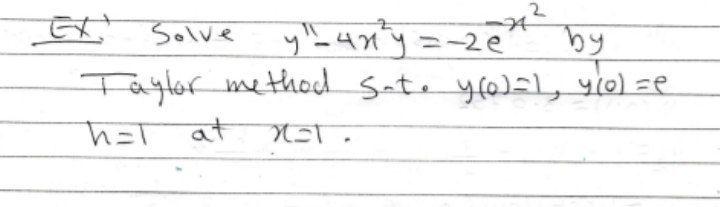 Ex: Solve y'' - 4x²y = -2e^{-x²} by
Taylor method s.t. y(0)=1, y'(0)=e
h=1 at x=1.